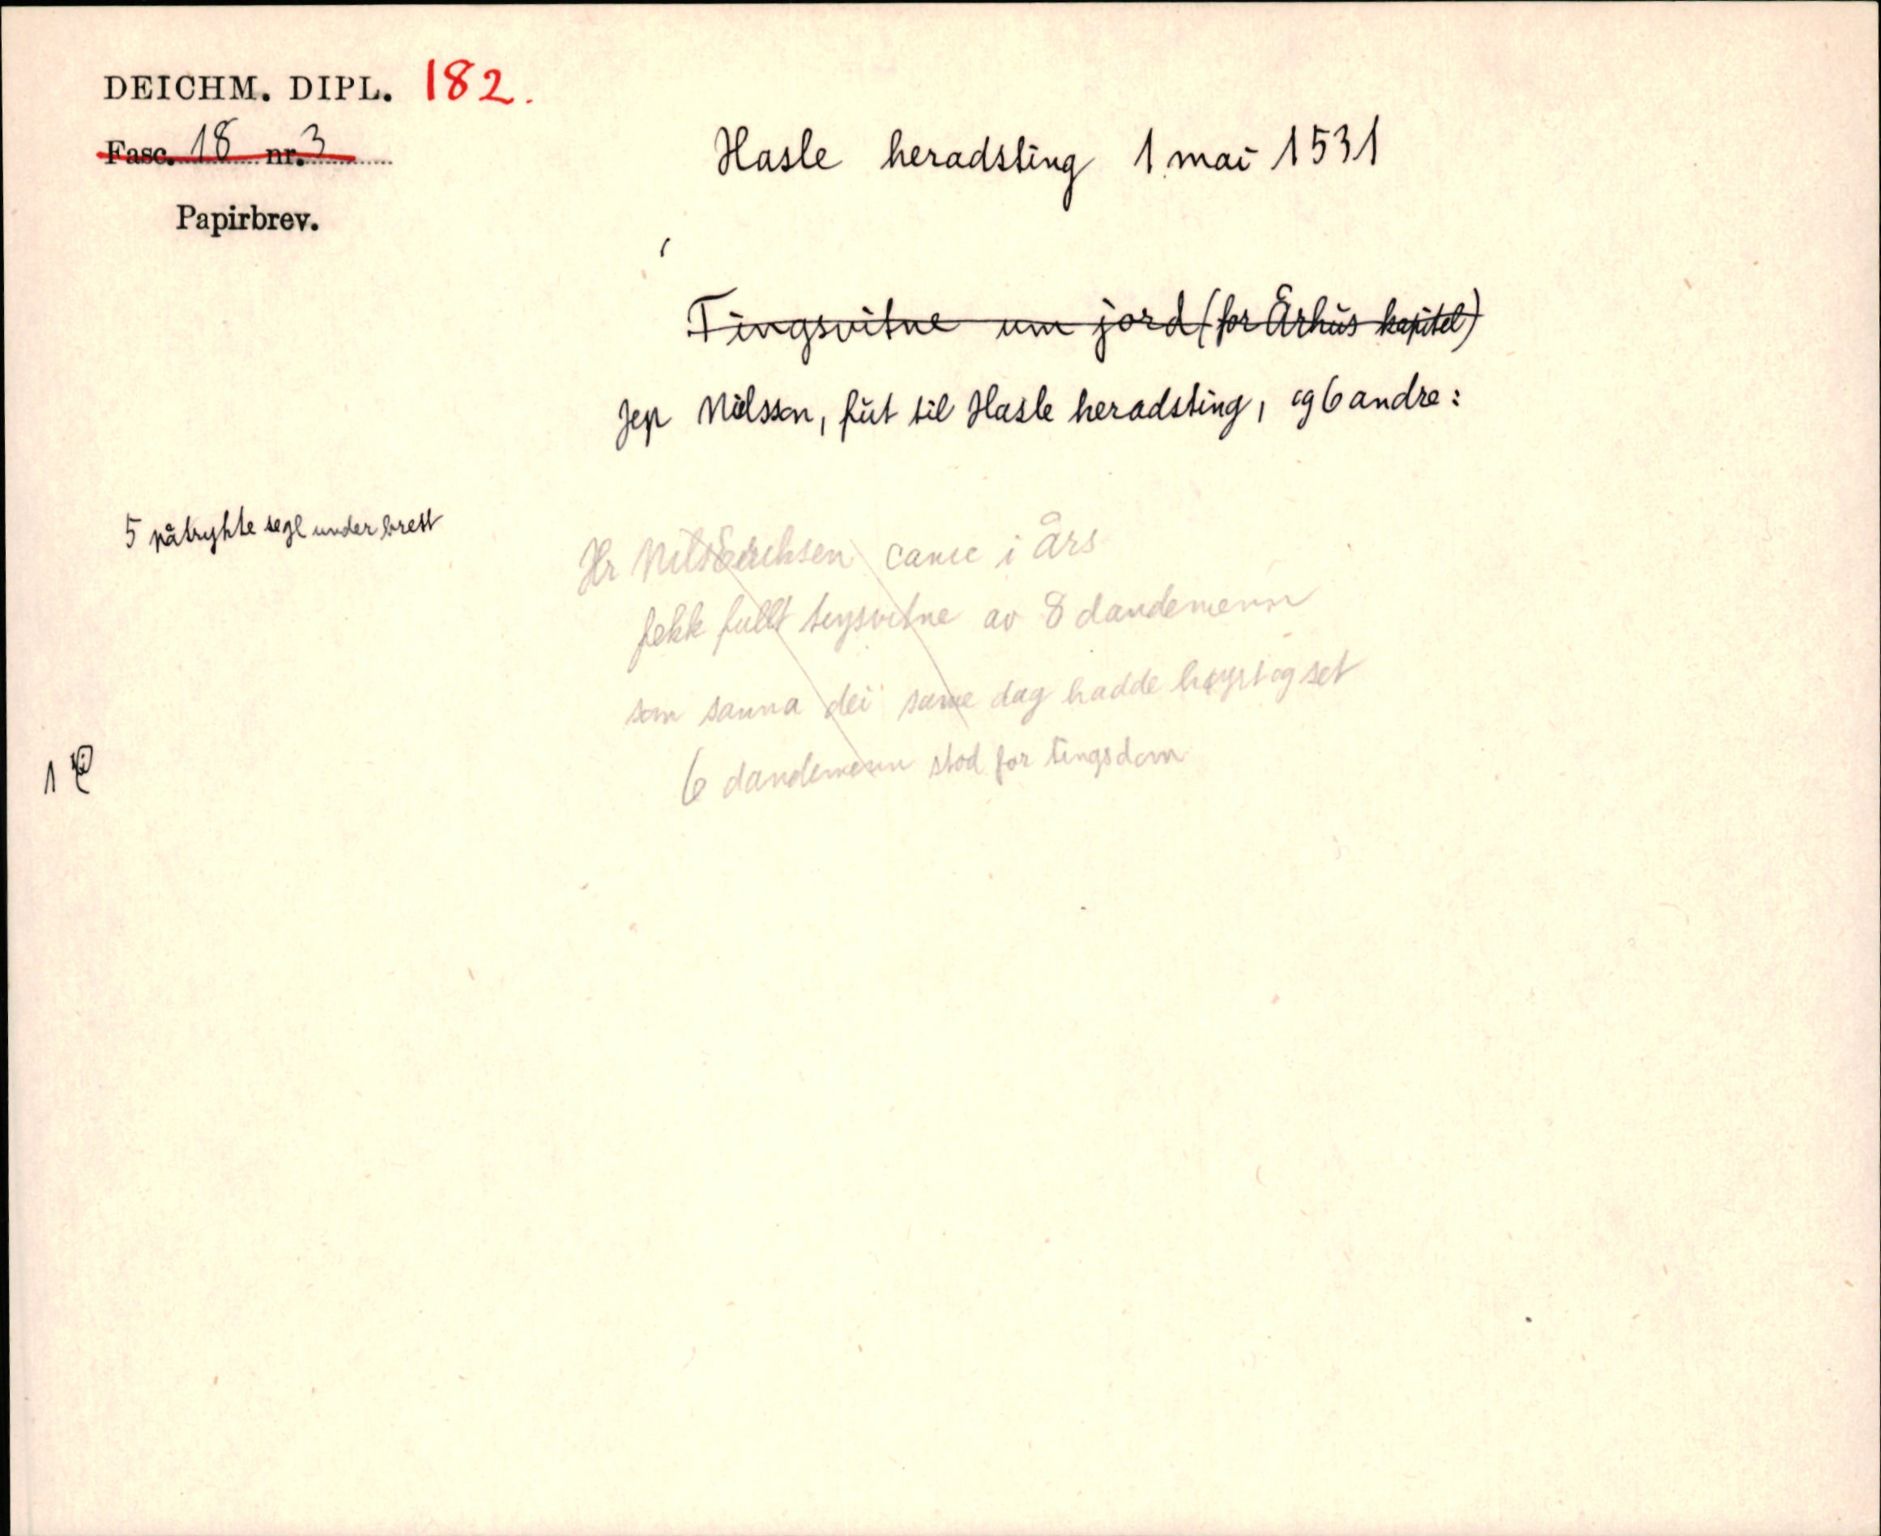 DEICHM. DIPL. 182.
Fasc. 18 nr. 3
Papirbrev.
Hasle heradsting 1 mai 1531
Tingsvitne um jord (for Århus kapitel)
Jep Nilsson, fut til Hasle heradsting, og 6 andre:
5 påtrykte segl under brest
Hr Nils Erichsen canic i Års
fekk fullt tingsvitne av 8 dandemenn
som sanna dei same dag hadde høyrt og set
6 dandemenn stod for tingsdom
1